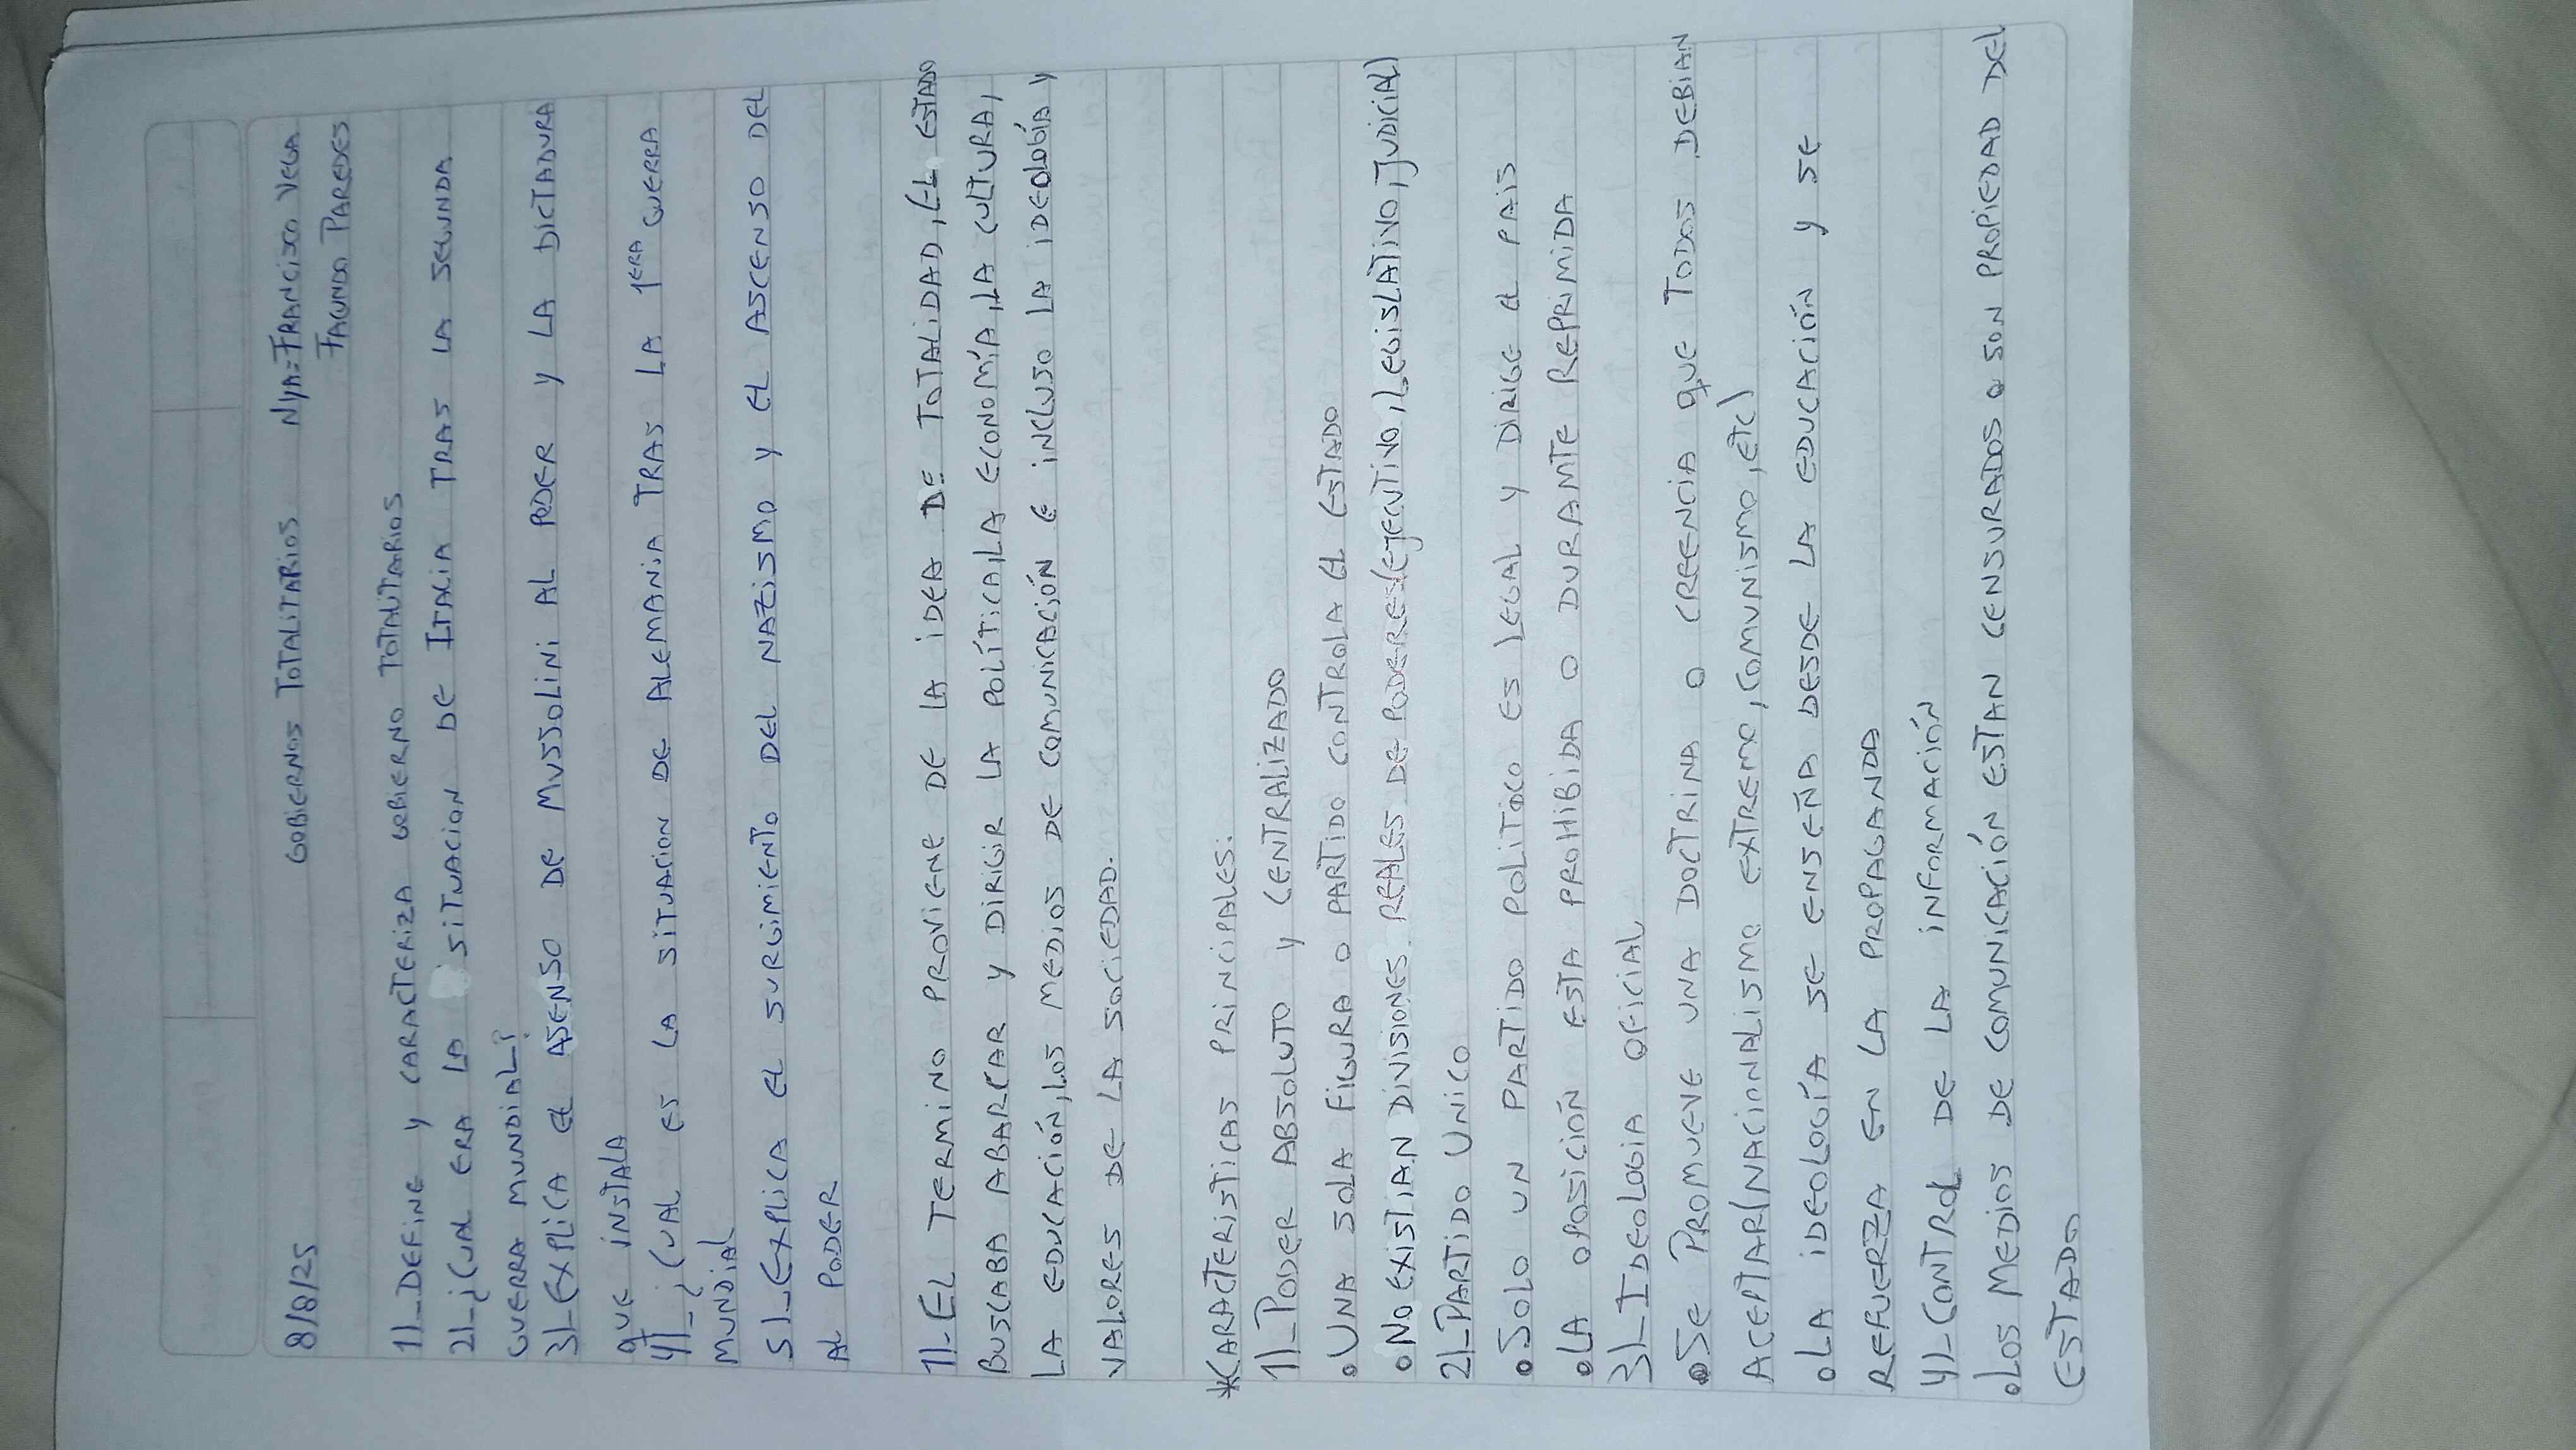 8/8/25 GOBIERNOS TOTALITARIOS NyA=FRANCISCO VEGA
FACUNDO PAREDES
1)_DEFINE y CARACTERIZA GOBIERNO TOTALITARIOS
2)_¿CUAL ERA LA SITUACION DE ITALIA TRAS LA SEGUNDA
GUERRA MUNDIAL?
3)_EXPLICA EL ASENSO DE MUSSOLINI AL PODER y LA DICTADURA
QUE INSTALA
4)_¿CUAL ES LA SITUACION DE ALEMANIA TRAS LA 1ERA GUERRA
MUNDIAL
5)_EXPLICA EL SURGIMIENTO DEL NAZISMO y EL ASCENSO DEL
AL PODER
1)_EL TERMINO PROVIENE DE LA IDEA DE TOTALIDAD, EL ESTADO
BUSCABA ABARCAR y DIRIGIR LA POLÍTICA, LA ECONOMÍA, LA CULTURA,
LA EDUCACIÓN, LOS MEDIOS DE COMUNICACIÓN E INCLUSO LA IDEOLOGÍA y
VALORES DE LA SOCIEDAD.
*CARACTERISTICAS PRINCIPALES:
1)_PODER ABSOLUTO y CENTRALIZADO
•UNA SOLA FIGURA O PARTIDO CONTROLA EL ESTADO
•NO EXISTIAN DIVISIONES REALES DE PODERES(EJECUTIVO, LEGISLATIVO, JUDICIAL)
2)_PARTIDO UNICO
•SOLO UN PARTIDO POLITICO ES LEGAL y DIRIGE EL PAIS
•LA OPOSICIÓN ESTA PROHIBIDA O DURAMTE REPRIMIDA
3)_IDEOLOGIA OFICIAL
•SE PROMUEVE UNA DOCTRINA O CREENCIA QUE TODOS DEBIAN
ACEPTAR(NACIONALISMO EXTREMO, COMUNISMO, ETC)
•LA IDEOLOGÍA SE ENSEÑA DESDE LA EDUCACIÓN y SE
REFUERZA EN LA PROPAGANDA
4)_CONTROL DE LA INFORMACIÓN
•LOS MEDIOS DE COMUNICACIÓN ESTAN CENSURADOS O SON PROPIEDAD DEL
ESTADO